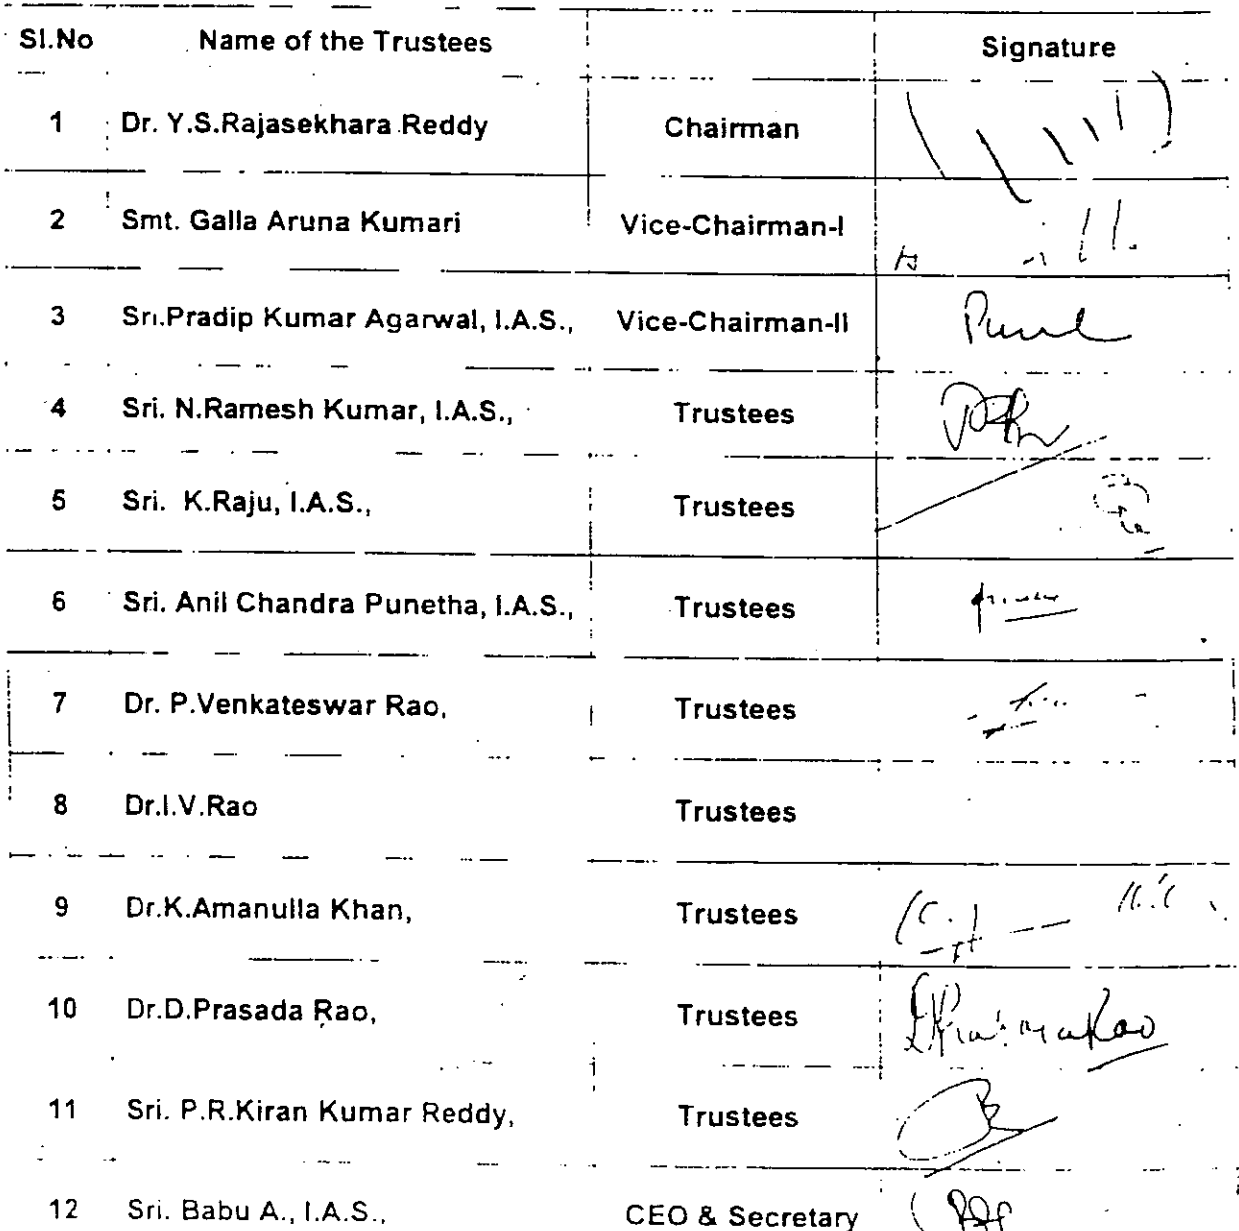 Sl.No Name of the Trustees Signature
1 Dr. Y.S.Rajasekhara Reddy Chairman
2 Smt. Galla Aruna Kumari Vice-Chairman-I
3 Sri.Pradip Kumar Agarwal, I.A.S., Vice-Chairman-II
4 Sri. N.Ramesh Kumar, I.A.S., Trustees
5 Sri. K.Raju, I.A.S., Trustees
6 Sri. Anil Chandra Punetha, I.A.S., Trustees
7 Dr. P.Venkateswar Rao, Trustees
8 Dr.I.V.Rao Trustees
9 Dr.K.Amanulla Khan, Trustees
10 Dr.D.Prasada Rao, Trustees
11 Sri. P.R.Kiran Kumar Reddy, Trustees
12 Sri. Babu A., I.A.S., CEO & Secretary